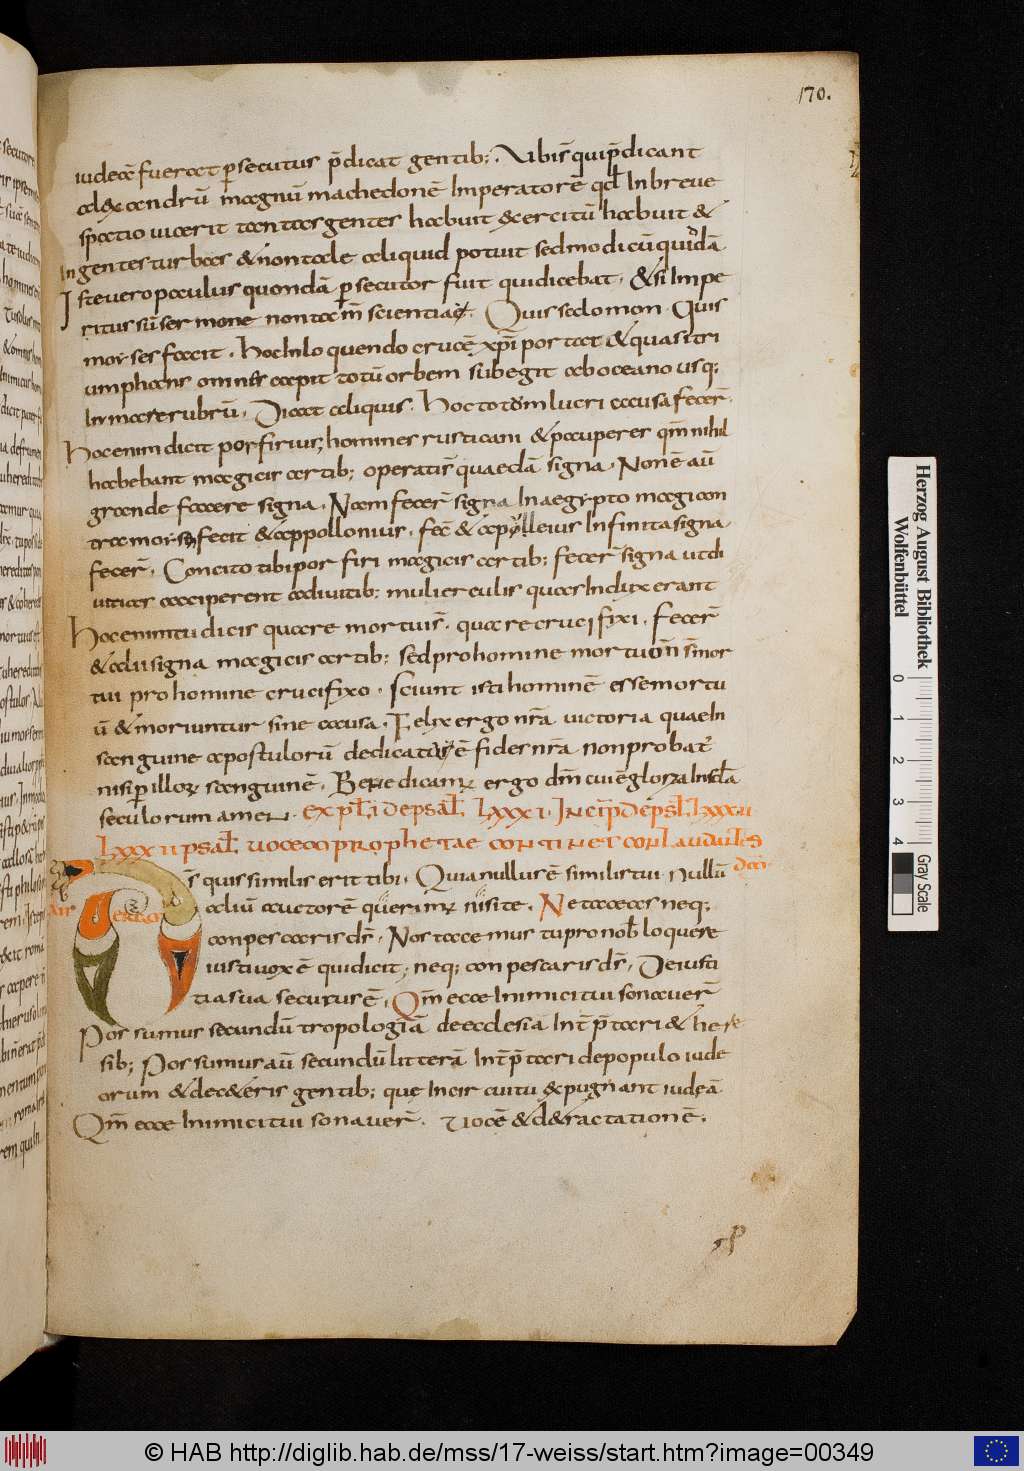 170.
iudeā fuerat ꝑsecutus p̄dicat gentib;. Ubis̄ qui p̄dicant
alexandrū magnū machedonē Imperatorē qđ In breue
spatio uicerit tantas gentes habuit exercitū habuit &
In gentes turbas & non tale aliquid potuit sed modicū quidā.
Iste uero paulus quondā ꝑsecutor fuit qui dicebat. & si Impe
ritus sū sermone non tam̄ scientia. Quis salomon. Quis
moyses facit. hoc In loquendo crucē xp̄i portat & quasi tri
umphans omnes cœpit totū orbem subegit ab oceano usq;
In mare rubrū. Dicat aliquis. Hoc totum lucri causa fecer̄.
Hoc enim dicit porfirius, homines rusticani & pauperes qm̄ nihil
habebant magicis artib; operati s̄ quaedā signa. Non ē aū
grande facere signa. Nam fecer̄ signa In aegypto magi con
tra moysen fecit & appollonius. fec̄ & apulleius Infinita signa
fecer̄. Concito tibi porfiri magicis artib; fecer̄ signa ut di
uitias acciperent a diuitib; mulierculis quas Induxerant
Hoc enim tu dicis quare mortui s̄. quare crucifixi. fecer̄
& alii signa magicis artib; sed pro homine mortuo n̄ s̄ mor
tui pro homine crucifixo. sciunt isti hominē esse mortu
ū & moriuntur sine causa. Felix ergo nr̄a uictoria quae In
sanguine apostulorū dedicata ē fides nr̄a non probat̄
nisi ꝑ illorꝝ sanguinē. Benedicamꝰ ergo dm̄ cui ē gloria In scl̄a
seculorum amen. expl̄i de psal̄ lxxxi. Incip̄ de psal̄ lxxxii
lxxxii psal̄ uox prophetae continet conlaudantes
dm̄
s̄ quis similis erit tibi. Quia nullus ē similis tui. Nullū
aliū auctorē querimꝰ nisi te. Ne taceas neq;
conpescaris ds̄. Nos tacemus tu pro nob̄ loquere
iusti uox ē qui dicit, neq; conpescaris ds̄. De iusti
tia sua securus ē. Qm̄ ecce Inimici tui sonauer̄
Possumus secundū tropologiā de ecclesia Int̄p̄tari & here
sib; Possumus aū secundū litterā Int̄p̄tari de populo iude
orum & de ceteris gentib; que In circuitu expugnant iudeā
Qm̄ ecce Inimici tui sonauer̄. Uocē & detractationē.
Herzog August Bibliothek
Wolfenbüttel
0 1 2 3 4
Gray Scale
© HAB http://diglib.hab.de/mss/17-weiss/start.htm?image=00349